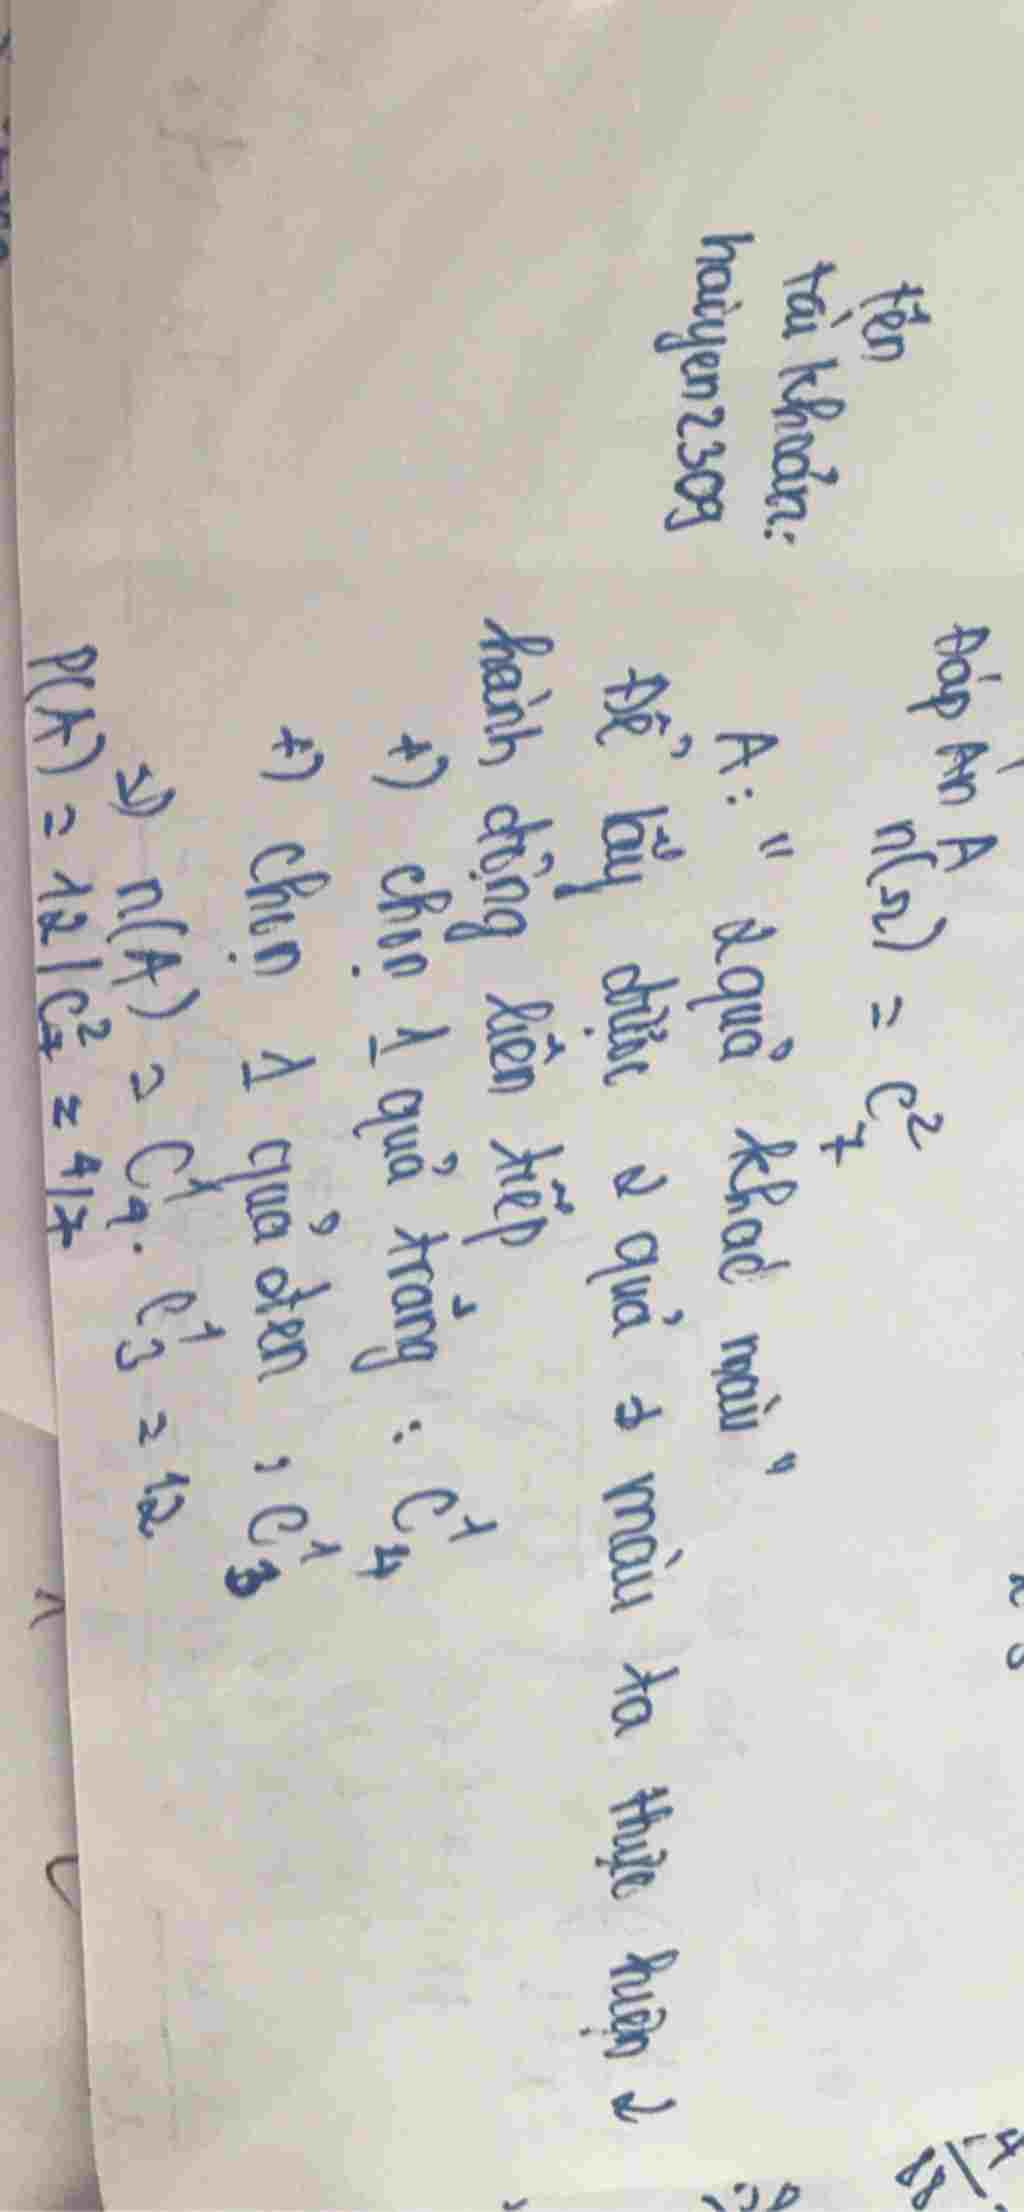 tên
tài khoản:
haiyen2309
Đáp Án A
n(Ω) = C²₇
A: " 2 quả khác màu "
Để lấy được 2 quả ≠ màu ta thực hiện 2
hành động liên tiếp
+) chọn 1 quả trắng : C¹₄
+) chọn 1 quả đen : C¹₃
=) n(A) = C¹₄. C¹₃ = 12
P(A) = 12/C²₇ = 4/7